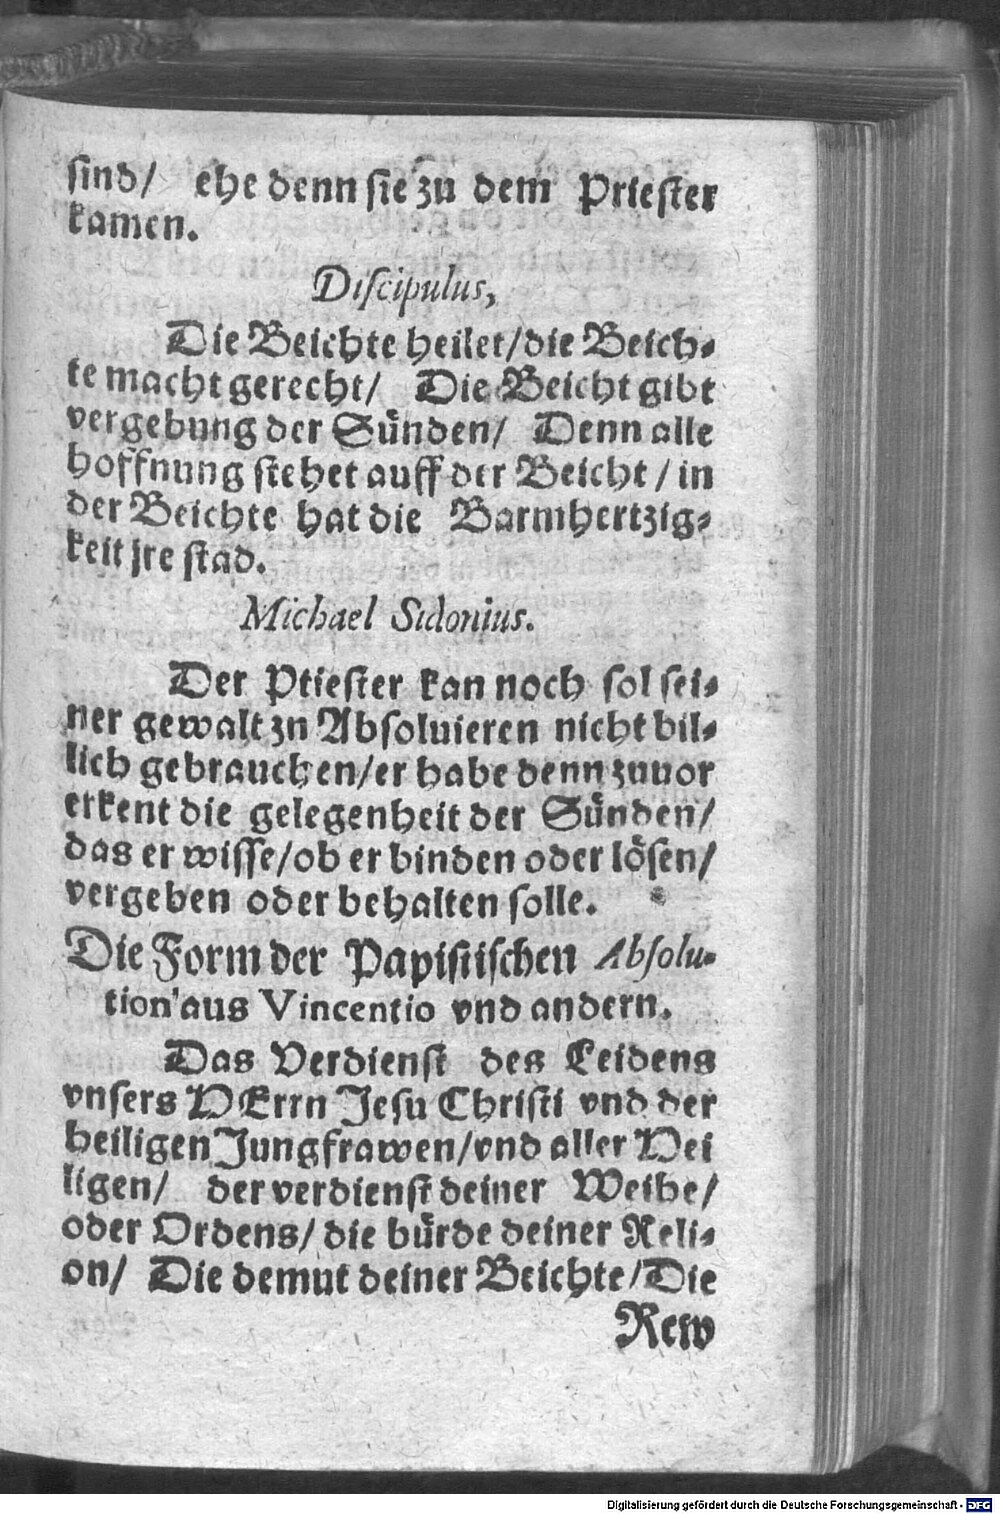 sind/ ehe denn sie zu dem Priester
kamen.
Discipulus,
Die Beichte heilet/die Beich-
te macht gerecht/ Die Beicht gibt
vergebung der Sünden/ Denn alle
hoffnung stehet auff der Beicht/in
der Beichte hat die Barmhertzig-
keit jre stad.
Michael Sidonius.
Der Ptiester kan noch sol sei-
ner gewalt zn Absoluieren nicht bil-
lich gebrauchen/er habe denn zuuor
erkent die gelegenheit der Sünden/
das er wisse/ob er binden oder lösen/
vergeben oder behalten solle.
Die Form der Papistischen Absolu-
tion aus Vincentio vnd andern.
Das Verdienst des Leidens
vnsers HErrn Jesu Christi vnd der
heiligen Jungfrawen/vnd aller Hei
ligen/ der verdienst deiner Weihe/
oder Ordens/die bürde deiner Reli-
on/ Die demut deiner Beichte/Die
Rew
Digitalisierung gefördert durch die Deutsche Forschungsgemeinschaft - DFG